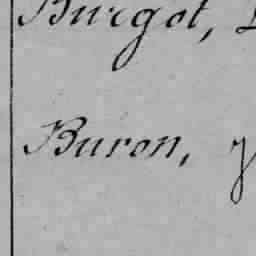 Burgot,
Buron,